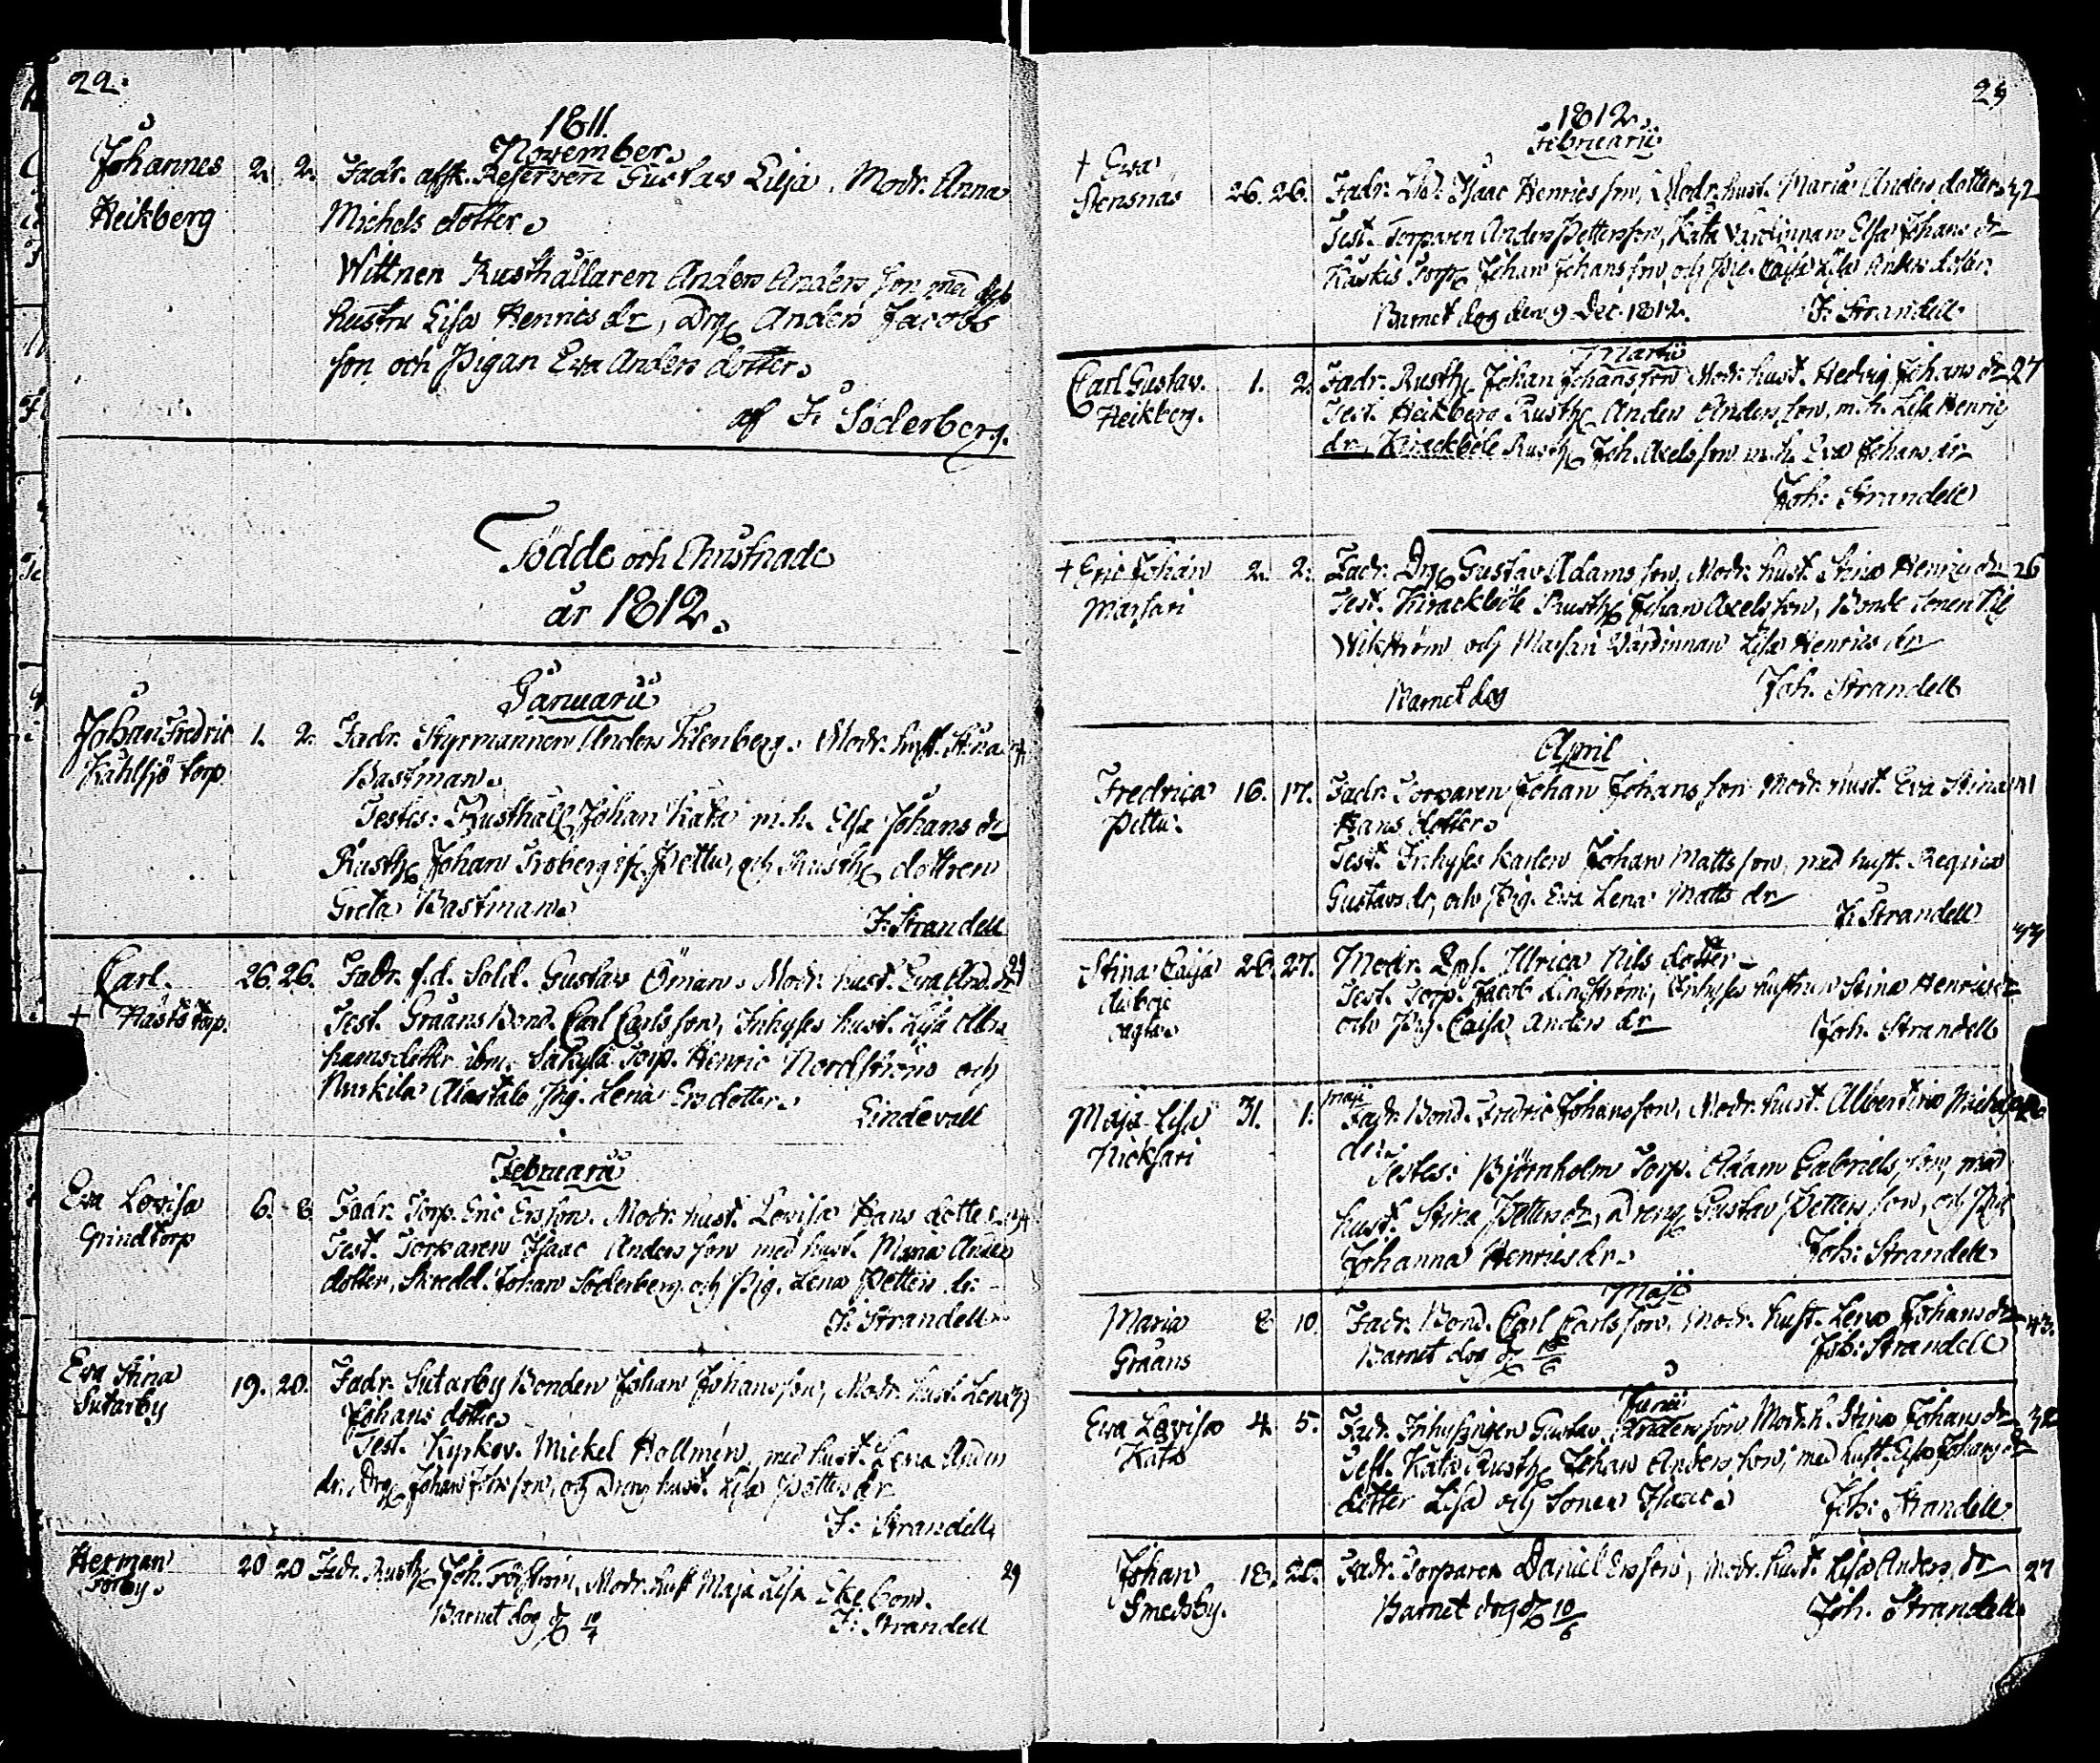 22.
1811.
November.
Johannes 2. 2. Fadr. affk. Reserven Gustav Lilja. Modr. Anna
Heikberg Michels dotter.
Wittnen Rusthållaren Anders Anders son med dess
hustru Lisa Henrics dr, Drg Anders Jacobs
son och Pigan Eva Anders dotter.
af F. Söderberg.
Födde och Christnade
år 1812.
Januarii
Johan Fredric 1. 2. Fadr. Styrmannen Anders Filenberg. Modr. hust. Stina
Kahlsjö torp. Bastman.
Testes: Rusthåll Johan Kata m.h. Elsa Johans dr
Rusth Johan Froberg Pettu, och Rusth dottren
Greta Bastman.
J. Strandell
Carl. 26. 26. Fadr. f.d. Sold. Gustav Öman. Modr. hust. Eva And. dr
+ Nåstö torp. Test. Graans Bond. Carl Carls son, Inhyses hust. Lisa Abra
hamsdotter ibm. Torp. Henric Nordström och
Alastalo Pig. Lena Ersdotter.
Lindevall
Februarii
Eva Lovisa 6. 8 Fadr. Torp. Eric Ersson. Modr. hust. Lovisa Hans dotter
Grindtorp Test. Torparen Isaac Anders son med hust. Maria Anders
dotter, Skredd. Johan Söderberg och Pig. Lena Petters dr.
J. Strandell
Eva Stina 19. 20. Fadr. Sutarby Bonden Johan Johansson, Modr. hust. Lena
Sutarby Johans dotter
Test. Kyrkov. Mickel Hollmén, med hust. Lena Anders
dr. Drg Johan Johs son, och Dreng hust. Lisa Petters dr
J. Strandell
Herman 20 20 Fadr. Rusth Joh. Forström, Modr. hust Maja Lisa Ekebom. 29
Torby. Barnet dog d 10/4 J. Strandell
1812.
Februarii
+ Eva 26. 26. Fadr. Isaac Henrics son, Modr. hust. Maria Anders dotter 42
Stensnäs Test. Torparen Anders Petterson, Kata Värdinnan Elsa Johans dr
Kuskis Torp Johan Johans son, och Pig. Caisa Lisa Anders dotter
Barnet dog den 9 Dec. 1812. J. Strandell
Martii
Carl Gustav. 1. 2. Fadr. Rusth Johan Johans son Modr. hust. Hedvig Johans dr 27
Heikberg. Test. Heikberg Rusth Anders Anders son, m.h. Lisa Henrics
dr, Kirackböle Rusth Joh. Axels son m.h. Eva Johans dr
Joh: Strandell
+ Eric Johan 2. 2. Fadr. Drg Gustav Adams son, Modr. hust. Stina Henrics dr 26
Marsari Test. Kirackböle Rusth Johan Axels son, Bonde sonen
Wikström och Marsari Värdinnan Lisa Henrics dr
Barnet dog Joh. Strandell
April
Fredrica 16. 17. Fadr. Torparen Johan Johans son Modr. hust. Eva Stina
Pettu. Hans dotter.
Test. Inhyses karlen Johan Matts son, med hust. Regina
Gustavs dr, och Pig. Eva Lena Matts dr
J. Strandell
Stina Caisa 26. 27. Modr. Ulrica Nils dotter
Test. Torp. Jacob Lindström, Inhyses hustrun Stina Henrics dr
och Pig. Caisa Anders dr Joh. Strandell
Maja Lisa 31. 1. maji Fadr. Bond. Fredric Johans son, Modr. hust. Albertina Michels
Nicksari dr.
Testes: Björnholm Torp. Adam Gabriels son, med
hust. Stina Petters dr, Dreng Gustav Petters son, och Pig
Johanna Henrics dr. Joh: Strandell
Maji
Maria 8 10. Fadr. Bond. Carl Carls son, Modr. hust. Lena Johans dr 43.
Graans Barnet dog d Joh: Strandell
Junii
Eva Lovisa 4. 5. Fadr. Inhysingen Gustav Anders son Modr. h. Stina Johans dr 32
Kata Test. Kata Rusth Johan Anders son, med hust. Elsa Johans dr
dotter Lisa och sonen Isaac. Joh: Strandell
Johan 18. 20. Fadr. Torparen Daniel Ersson, Modr. hust. Lisa Anders dr 27
Smedsby. Barnet dog d 10/6 Joh. Strandell